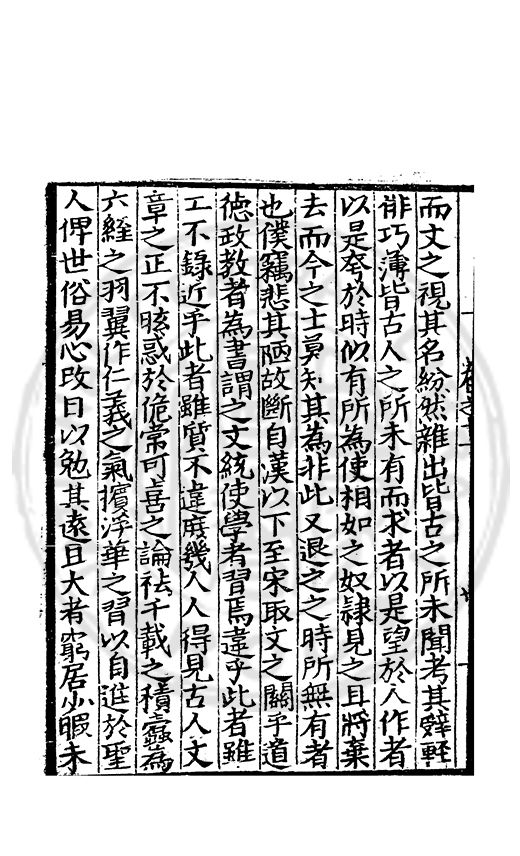 而文之視其名紛然雜出皆古之所未聞考其辭輕
俳巧薄皆古人之所未有而求者以是望於人作者
以是夸於時似有所為使相如之奴隷見之且將棄
去而今之士莫知其為非此又退之之時所無有者
也僕竊悲其陋故斷自漢以下至宋取文之關乎道
徳政教者為書謂之文統使學者習焉違乎此者雖
工不錄近乎此者雖質不違庶幾人人得見古人文
章之正不眩惑於佹常可喜之論祛千載之積蠹為
六經之羽翼作仁義之氣擯浮華之習以自進於聖
人俾世俗易心改目以勉其遠且大者窮居少暇未